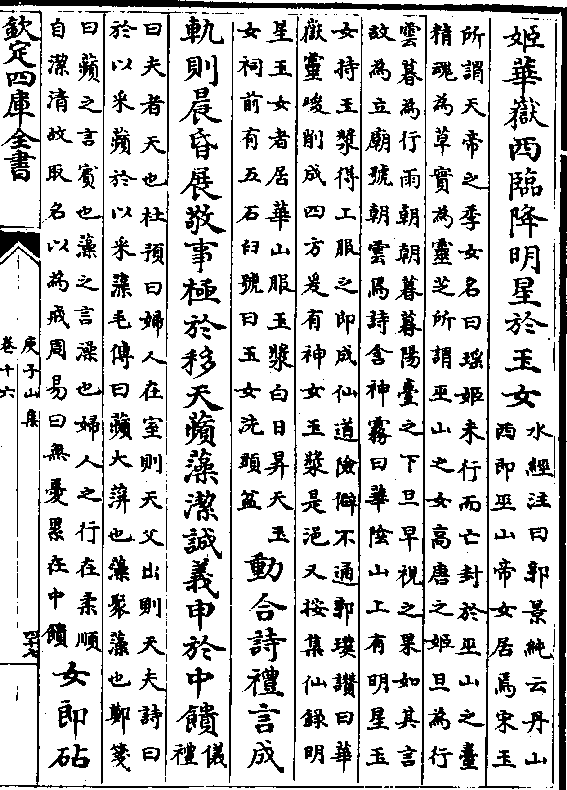 姬華嶽西臨降明星於玉女
水經注曰郭景純云丹山
西即巫山帝女居焉宋玉
所謂天帝之季女名曰瑤姬未行而亡封於巫山之臺
精魂為草實為靈芝所謂巫山之女高唐之姬旦為行
雲暮為行雨朝朝暮暮陽臺之下旦早視之果如其言
故為立廟號朝雲焉詩含神霧曰華陰山上有明星玉
女持玉漿得上服之即成仙道險僻不通郭璞讚曰華
嶽靈峻削成四方爰有神女玉漿是浥又按集仙錄明
星玉女者居華山服玉漿白日昇天玉
女祠前有五石臼號曰玉女洗頭盆
動合詩禮言成
軌則晨昏展敬事極於移天蘋藻潔誠義申於中饋
儀
禮
曰夫者天也杜預曰婦人在室則天父出則天夫詩曰
於以采蘋於以采藻毛傳曰蘋大蓱也藻聚藻也鄭箋
曰蘋之言賓也藻之言澡也婦人之行在柔順
自潔清故取名以為戒周易曰無憂累在中饋
女即砧
欽定四庫全書
庾子山集
卷十六